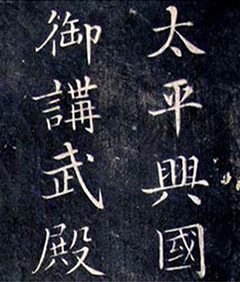 太平興國
御講武殿